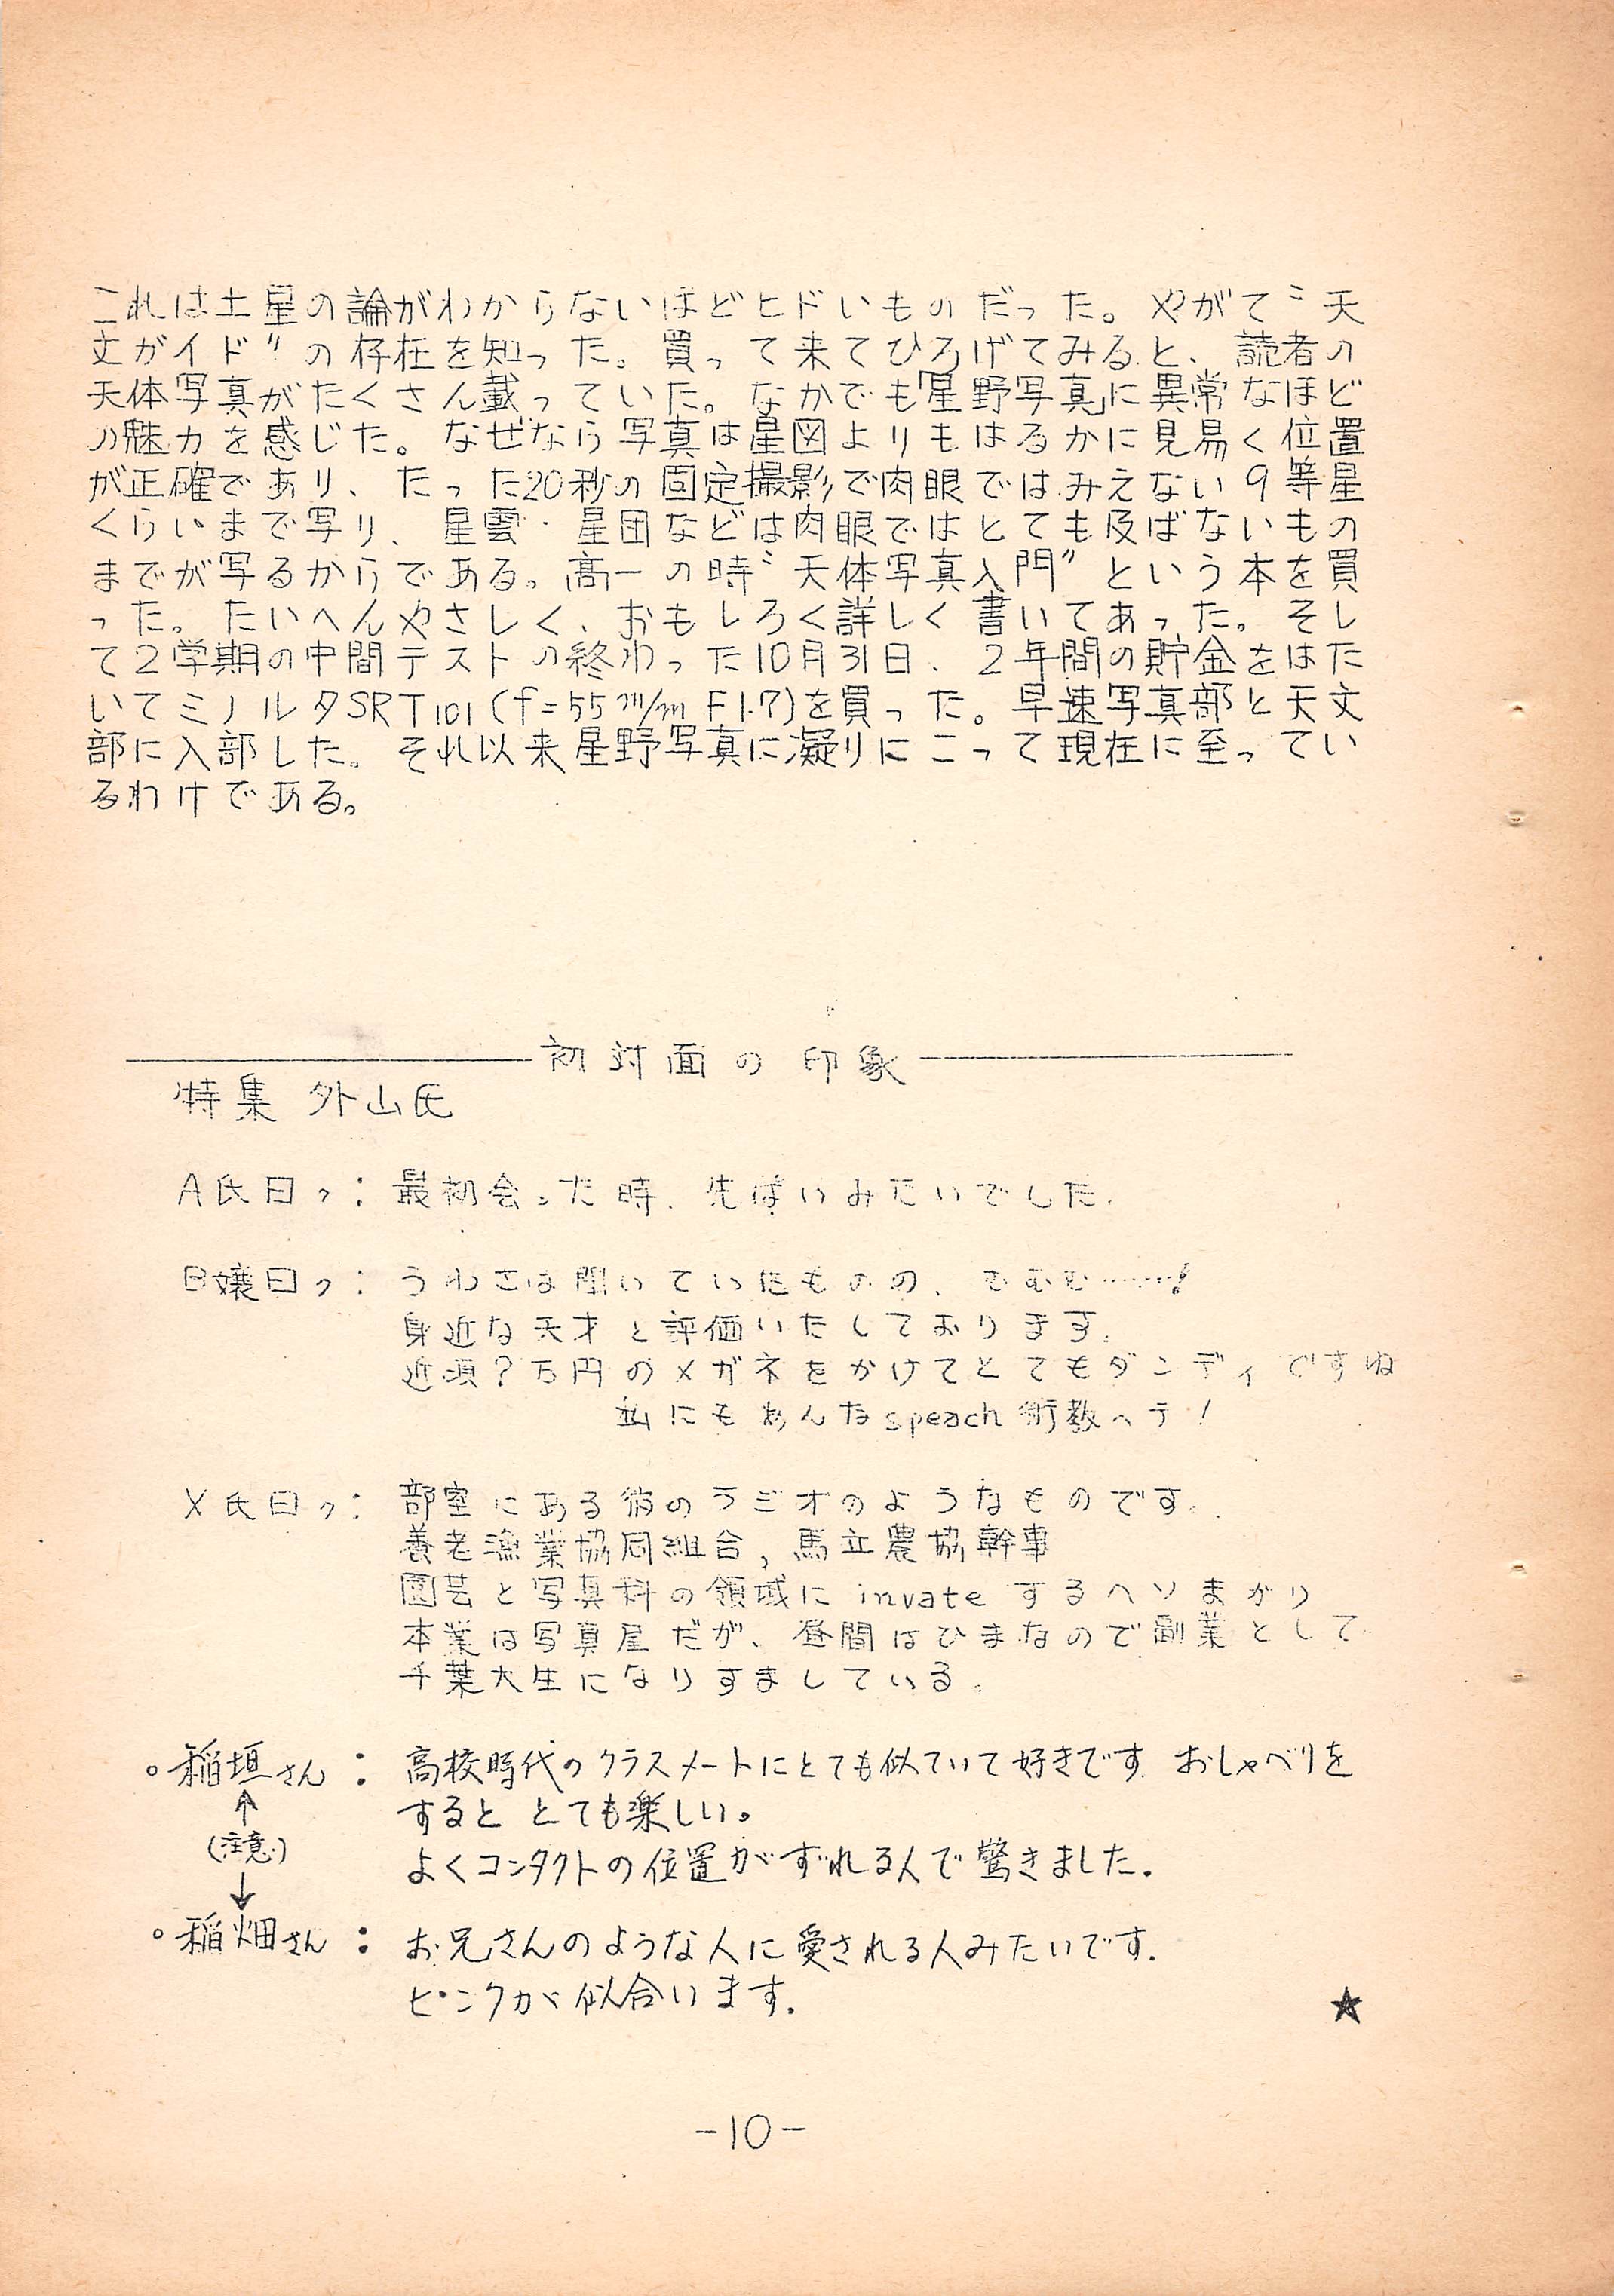 これは土星の論がわからないほどヒドいものだった。やがて〝天
文ガイド〞の存在を知った。買って来てひろげてみると、読者の
天体写真がたくさん載っていた。なかでも「星野写真」に異常なほど
の魅力を感じた。なぜなら写真は星図よりもはるかに見易く位置
が正確であり、たった20秒の固定撮影で肉眼ではみえない9等星
くらいまで写り、星雲・星団などは肉眼ではとても及ばないもの
までが写るからである。高一の時〝天体写真入門〞という本を買
った。たいへんやさしく、おもしろく詳しく書いてあった。そし
て2学期の中間テストの終わった10月31日、2年間の貯金をはた
いてミノルタSRT101(f=55m/m F1.7)を買った。早速写真部と天文
部に入部した。それ以来星野写真に凝りにこって現在に至ってい
るわけである。
初対面の印象
特集 外山氏
A氏曰ク: 最初会った時、先ぱいみたいでした.
B嬢曰ク: うわさは聞いていたものの、むむむ……!
身近な天才と評価いたしております.
近頃?万円のメガネをかけてとてもダンディですね
私にもあんなspeach術教ヘテ!
X氏曰ク: 部室にある彼のラジオのようなものです.
養老漁業協同組合, 馬立農協幹事
園芸と写真科の領域にinvateするヘソまがり
本業は写真屋だが、昼間はひまなので副業として
千葉大生になりすましている。
○稲垣さん: 高校時代のクラスメートにとても似ていて好きです. おしゃべりを
すると とても楽しい。
(注意)
よくコンタクトの位置がずれる人で驚きました.
○稲畑さん: お兄さんのような人に愛される人みたいです.
ピンクが似合います.
★
-10-